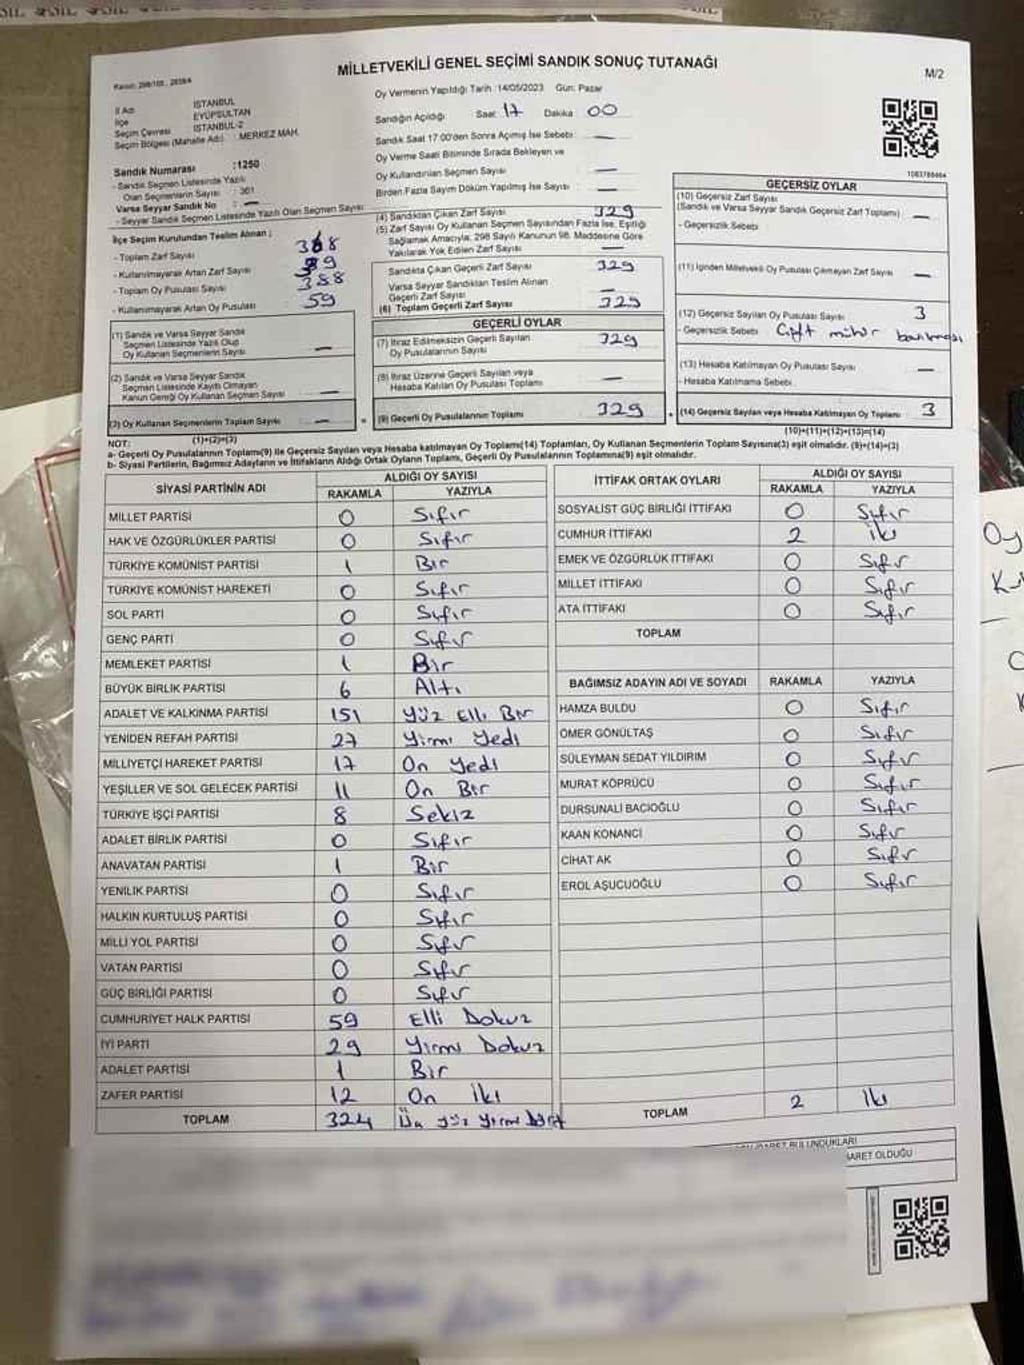 MİLLETVEKİLİ GENEL SEÇİMİ SANDIK SONUÇ TUTANAĞI
M/2
Oy Vermenin Yapıldığı Tarih : 14/05/2023 Gün: Pazar
İl Adı İSTANBUL
İlçe EYÜPSULTAN
Seçim Çevresi İSTANBUL-2
Seçim Bölgesi (Mahalle Adı) : MERKEZ MAH.
Sandığın Açıldığı Saat 17 Dakika 00
Sandık Saat 17:00'den Sonra Açılmış İse Sebebi : —
Oy Verme Saati Bitiminde Sırada Bekleyen ve
Oy Kullandırılan Seçmen Sayısı —
Birden Fazla Sayım Döküm Yapılmış İse Sayısı : —
Sandık Numarası : 1250
- Sandık Seçmen Listesinde Yazılı
Olan Seçmenlerin Sayısı : 361
Varsa Seyyar Sandık No : —
- Seyyar Sandık Seçmen Listesinde Yazılı Olan Seçmen Sayısı
İlçe Seçim Kurulundan Teslim Alınan ;
- Toplam Zarf Sayısı 388
- Kullanılmayarak Artan Zarf Sayısı
- Toplam Oy Pusulası Sayısı 388
- Kullanılmayarak Artan Oy Pusulası 59
(1) Sandık ve Varsa Seyyar Sandık
Seçmen Listesinde Yazılı Olup
Oy Kullanan Seçmenlerin Sayısı —
(2) Sandık ve Varsa Seyyar Sandık
Seçmen Listesinde Kayıtlı Olmayan
Kanun Gereği Oy Kullanan Seçmen Sayısı —
(3) Oy Kullanan Seçmenlerin Toplam Sayısı —
(1)+(2)=(3)
(4) Sandıktan Çıkan Zarf Sayısı 329
(5) Zarf Sayısı Oy Kullanan Seçmen Sayısından Fazla İse, Eşitliği
Sağlamak Amacıyla, 298 Sayılı Kanunun 98. Maddesine Göre
Yakılarak Yok Edilen Zarf Sayısı —
Sandıkta Çıkan Geçerli Zarf Sayısı 329
Varsa Seyyar Sandıktan Teslim Alınan
Geçerli Zarf Sayısı —
(6) Toplam Geçerli Zarf Sayısı 329
GEÇERLİ OYLAR
(7) İtiraz Edilmeksizin Geçerli Sayılan
Oy Pusulalarının Sayısı 329
(8) İtiraz Üzerine Geçerli Sayılan veya
Hesaba Katılan Oy Pusulası Toplamı —
(9) Geçerli Oy Pusulalarının Toplamı 329
1083788464
GEÇERSİZ OYLAR
(10) Geçersiz Zarf Sayısı
(Sandık ve Varsa Seyyar Sandık Geçersiz Zarf Toplamı) —
- Geçersizlik Sebebi
(11) İçinden Milletvekili Oy Pusulası Çıkmayan Zarf Sayısı —
(12) Geçersiz Sayılan Oy Pusulası Sayısı 3
- Geçersizlik Sebebi Çift mühür basılması
(13) Hesaba Katılmayan Oy Pusulası Sayısı —
- Hesaba Katılmama Sebebi
(14) Geçersiz Sayılan veya Hesaba Katılmayan Oy Toplamı 3
(10)+(11)+(12)+(13)=(14)
NOT:
a- Geçerli Oy Pusulalarının Toplamı(9) ile Geçersiz Sayılan veya Hesaba katılmayan Oy Toplamı(14) Toplamları, Oy Kullanan Seçmenlerin Toplam Sayısına(3) eşit olmalıdır. (9)+(14)=(3)
b- Siyasi Partilerin, Bağımsız Adayların ve İttifakların Aldığı Ortak Oyların Toplamı, Geçerli Oy Pusulalarının Toplamına(9) eşit olmalıdır.
SİYASİ PARTİNİN ADI ALDIĞI OY SAYISI
RAKAMLA YAZIYLA
MİLLET PARTİSİ 0 Sıfır
HAK VE ÖZGÜRLÜKLER PARTİSİ 0 Sıfır
TÜRKİYE KOMÜNİST PARTİSİ 1 Bir
TÜRKİYE KOMÜNİST HAREKETİ 0 Sıfır
SOL PARTİ 0 Sıfır
GENÇ PARTİ 0 Sıfır
MEMLEKET PARTİSİ 1 Bir
BÜYÜK BİRLİK PARTİSİ 6 Altı
ADALET VE KALKINMA PARTİSİ 151 Yüz Elli Bir
YENİDEN REFAH PARTİSİ 27 Yirmi Yedi
MİLLİYETÇİ HAREKET PARTİSİ 17 On Yedi
YEŞİLLER VE SOL GELECEK PARTİSİ 11 On Bir
TÜRKİYE İŞÇİ PARTİSİ 8 Sekiz
ADALET BİRLİK PARTİSİ 0 Sıfır
ANAVATAN PARTİSİ 1 Bir
YENİLİK PARTİSİ 0 Sıfır
HALKIN KURTULUŞ PARTİSİ 0 Sıfır
MİLLİ YOL PARTİSİ 0 Sıfır
VATAN PARTİSİ 0 Sıfır
GÜÇ BİRLİĞİ PARTİSİ 0 Sıfır
CUMHURİYET HALK PARTİSİ 59 Elli Dokuz
İYİ PARTİ 29 Yirmi Dokuz
ADALET PARTİSİ 1 Bir
ZAFER PARTİSİ 12 On İki
TOPLAM 324 Üç yüz yirmi dört
İTTİFAK ORTAK OYLARI ALDIĞI OY SAYISI
RAKAMLA YAZIYLA
SOSYALİST GÜÇ BİRLİĞİ İTTİFAKI 0 Sıfır
CUMHUR İTTİFAKI 2 İki
EMEK VE ÖZGÜRLÜK İTTİFAKI 0 Sıfır
MİLLET İTTİFAKI 0 Sıfır
ATA İTTİFAKI 0 Sıfır
TOPLAM
BAĞIMSIZ ADAYIN ADI VE SOYADI RAKAMLA YAZIYLA
HAMZA BULDU 0 Sıfır
ÖMER GÖNÜLTAŞ 0 Sıfır
SÜLEYMAN SEDAT YILDIRIM 0 Sıfır
MURAT KÖPRÜCÜ 0 Sıfır
DURSUNALİ BACIOĞLU 0 Sıfır
KAAN KONANCİ 0 Sıfır
CİHAT AK 0 Sıfır
EROL AŞUCUOĞLU 0 Sıfır
TOPLAM 2 İki
BULUNDUKLARI
OLDUĞU
Oy